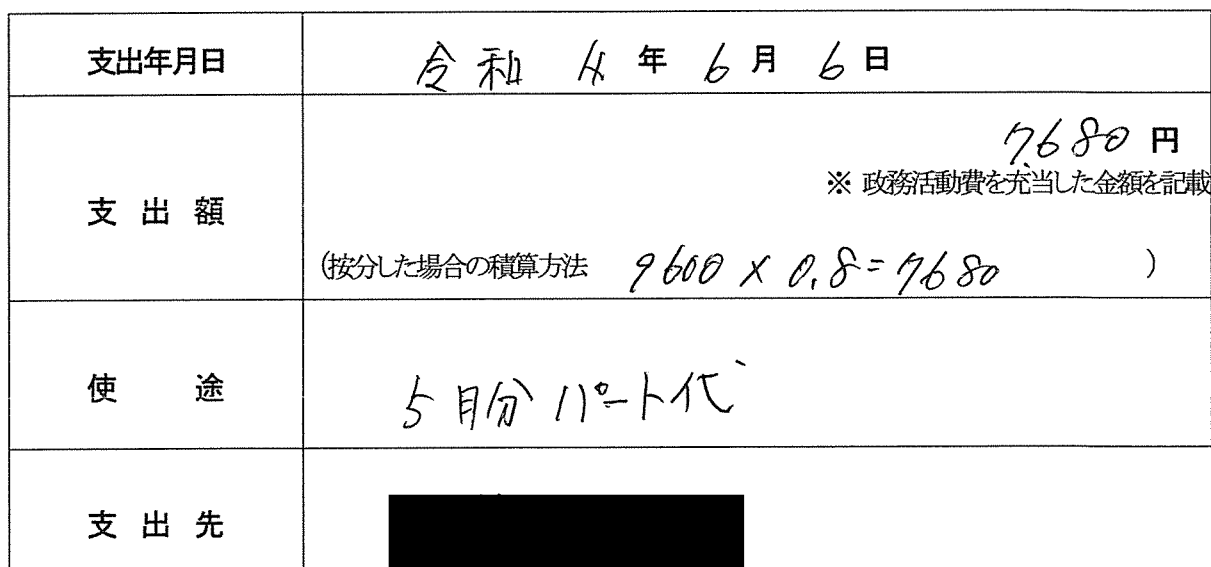 支出年月日 令和 4 年 6 月 6 日
7,680 円
※ 政務活動費を充当した金額を記載
支 出 額
(按分した場合の積算方法 9600 × 0.8 = 7680 )
使 途 5月分 パート代
支 出 先